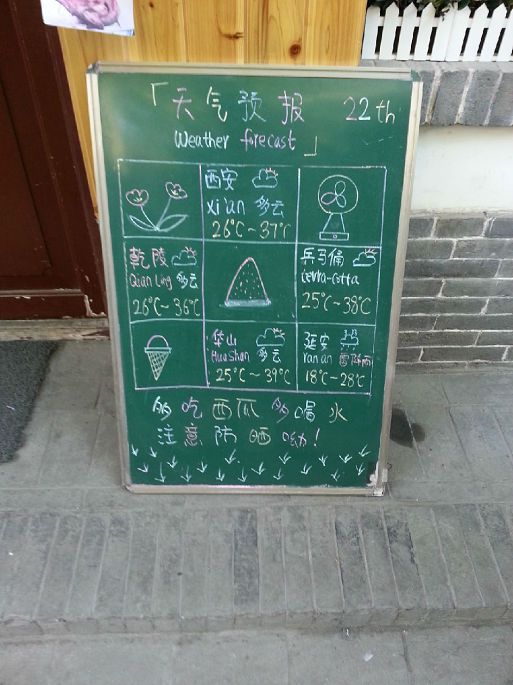 「天气预报 22th
Weather forecast」
西安
xi'an 多云
26℃~37℃
乾陵
Qian Ling 多云
26℃~36℃
兵马俑
terra-cotta
25℃~38℃
华山
Hua Shan 多云
25℃~39℃
延安
Yan an 雷阵雨
18℃~28℃
多吃西瓜多喝水
注意防晒呦!